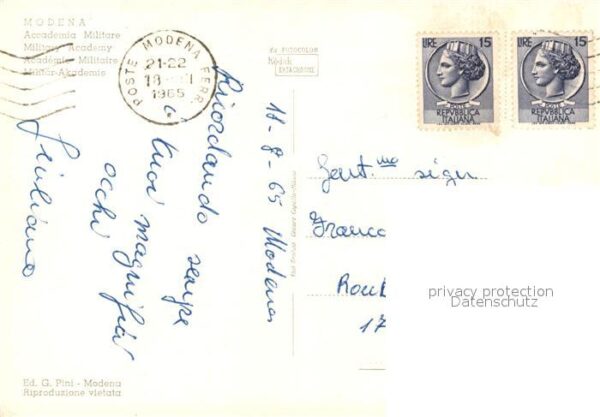 MODENA
Accademia Militare
Military Academy
Académie Militaire
Militär-Akademie
POSTE MODENA FERR.
21-22
1965
Kodak
EKTACHROME
LIRE 15
REPVBBLICA
ITALIANA
LIRE 15
REPVBBLICA
ITALIANA
18-8-65 Modena
Ricordando sempre
i tuoi magnifici
occhi
Giuliano
Gent.ma sign
Franco
Rout
17
privacy protection
Datenschutz
Ed. G. Pini - Modena
Riproduzione vietata